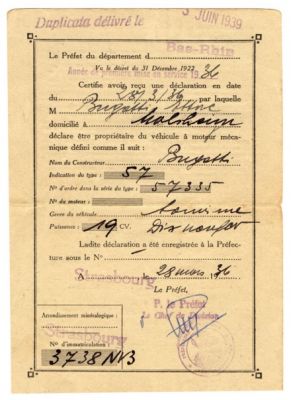 Duplicata délivré le 3 JUIN 1939
Le Préfet du département d
Bas-Rhin
Vu le décret du 31 Décembre 1922
Année de première mise en service 1936
Certifie avoir reçu une déclaration en date
du par laquelle
M Bugatti
domicilié à Molsheim
déclare être propriétaire du véhicule à moteur méca-
nique défini comme il suit :
Nom du Constructeur Bugatti
Indication du type : 57
N° d'ordre dans la série du type : 57335
N° du moteur :
Genre du véhicule
Puissance : 19 CV. Dix neuf cv
Ladite déclaration a été enregistrée à la Préfec-
ture sous le N°
Strasbourg
A 28 mars 36
Le Préfet,
P. le Préfet
Le Chef de Division
Arrondissement minéralogique :
Strasbourg
N° d'immatriculation :
3738 NV3